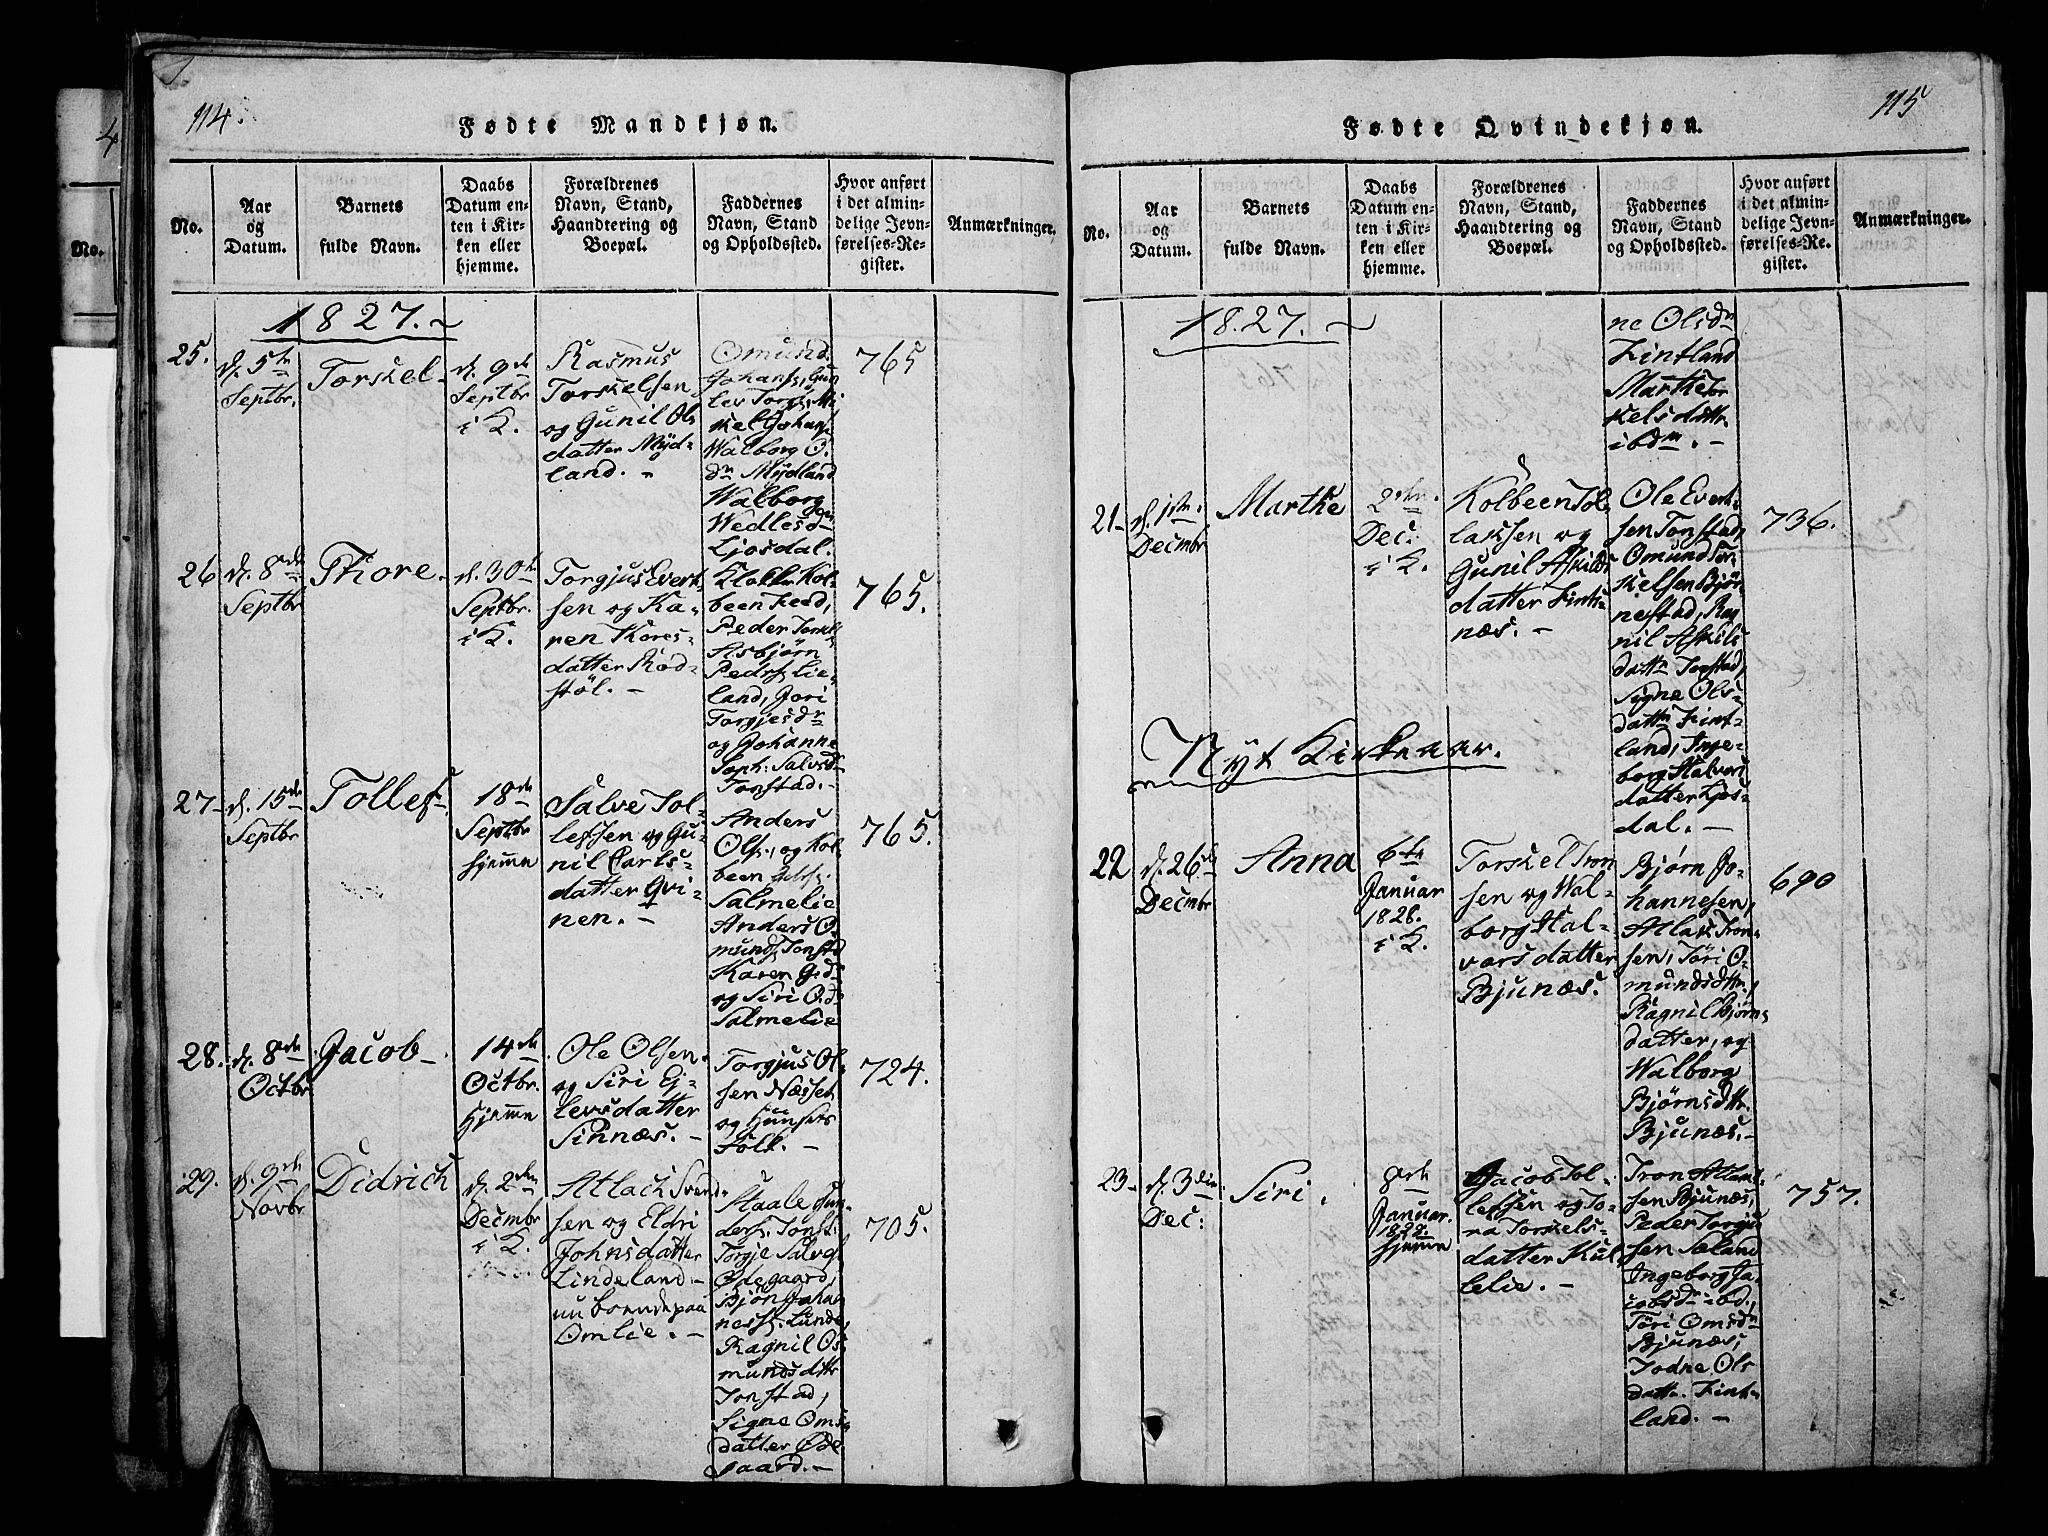 114.
Fødte Mandkjøn.
No.
Aar
og
Datum.
Barnets
fulde Navn.
Daabs
Datum en-
ten i Kir-
ken eller
hjemme.
Forældrenes
Navn, Stand,
Haandtering og
Boepæl.
Faddernes
Navn, Stand
og Opholdssted.
Hvor anført
i det almin-
delige Jevn-
førelses-Re-
gister.
Anmærkninger.
1827.
25.
d. 5te
Septbr.
Torskel
d. 9de
Septbr
i K.
Rasmus
Torskelsen
og Gunil Ols
datter Mÿd-
land.
Omund
Johans, Gun
lev Torgs, Mi
kel Johans
Walborg O.
dr Mÿdland
Walborg
Wedlesdr
Ljosdal.
765
26
d. 8de
Septbr
Thore.
d. 30te
Septbr.
i K.
Torgjus Evert
sen og Ka-
ren Thores-
datter Rød-
støl.
Kol-
been Feed,
Peder
Asbjørn
Peders Lie-
land, Jori
Torgjesdr
og Johanne
Soph: Salvsd
Tonstad.
765.
27
d. 15de
Septbr
Tollef
18de
Septbr
hjemme
Salve Tol-
lefsen og Gu-
nil Carls-
datter Qvi-
nen.
Anders
Ols., og Kol-
been
Salmelie
Anders O
munds Tonstd
Karen
og Siri
Salmelie
765.
28.
d. 8de
Octbr
Jacob
14de
Octbr.
Hjemme
Ole Olsen
og Siri Ej-
levsdatter
Sinnæs.
Torgjus Ol-
sen Næsset
og Hunsets
Folk.
724.
29.
d. 9de
Novbr
Didrich
d. 2den
Decmbr
i K.
Atlach Svend-
sen og Eldri
Johnsdatter
Lindeland
nu boende paa
Omlie.
Staale Gun-
ders. Tonst
Torgje Salves
Ødegaard,
Bjørn Johan
ness. Lunde,
Ragnil Os
mundsdttr
Tonstad,
Signe Oms
datter Øde
gaard.
705.
115
Fødte Qvindekjøn.
No.
Aar
og
Datum.
Barnets
fulde Navn.
Daabs
Datum en-
ten i Kir-
ken eller
hjemme.
Forældrenes
Navn, Stand,
Haandtering og
Boepæl.
Faddernes
Navn, Stand
og Opholdssted.
Hvor anført
i det almin-
delige Jevn-
førelses-Re-
gister.
Anmærkninger.
1827.
ne Olsdr
Fintland
Marthe Tor
kelsdattr
ibdm.
21
d. 1ste
Decmbr
Marthe
2den
Dec:
i K.
Kolbeen Tol
laksen og
Gunil Askilds
datter Fints-
næs.
Ole Evert-
sen Tonstad,
Omund Tor-
kelsen Bjør-
nestad, Rag
nil Askils
dattr Tonstad,
Signe Ols-
dattr Fint-
land, Inge-
borg Halvors
datter Ljos-
dal.
736.
Nyt Kirkeaar.
22
d. 26de
Decmbr
Anna
6te
Januar
1828.
i K.
Torskel Tron
sen og Wal-
borg Hal-
vorsdatter
Bjunæs.
Bjørn Jo-
hannesen,
Atlak Tron-
sen, Töri O-
mundsdttr,
Ragnil Bjørns
datter, og
Walborg
Bjørnsdttr.
Bjunæs.
690
23
d. 3die
Dec:
Siri.
Januar.
1828.
hjemme
Jacob Tol-
lefsen og To-
na Torskels-
datter Kul
lelie.
Tron Atlak-
sen Bjunæs,
Peder Torgju
sen Sæland
Ingeborg Ja-
cobsdr ibd.,
Töri Omsdr
Bjunæs,
Todne Ols
dattr. Fint-
land.
757.